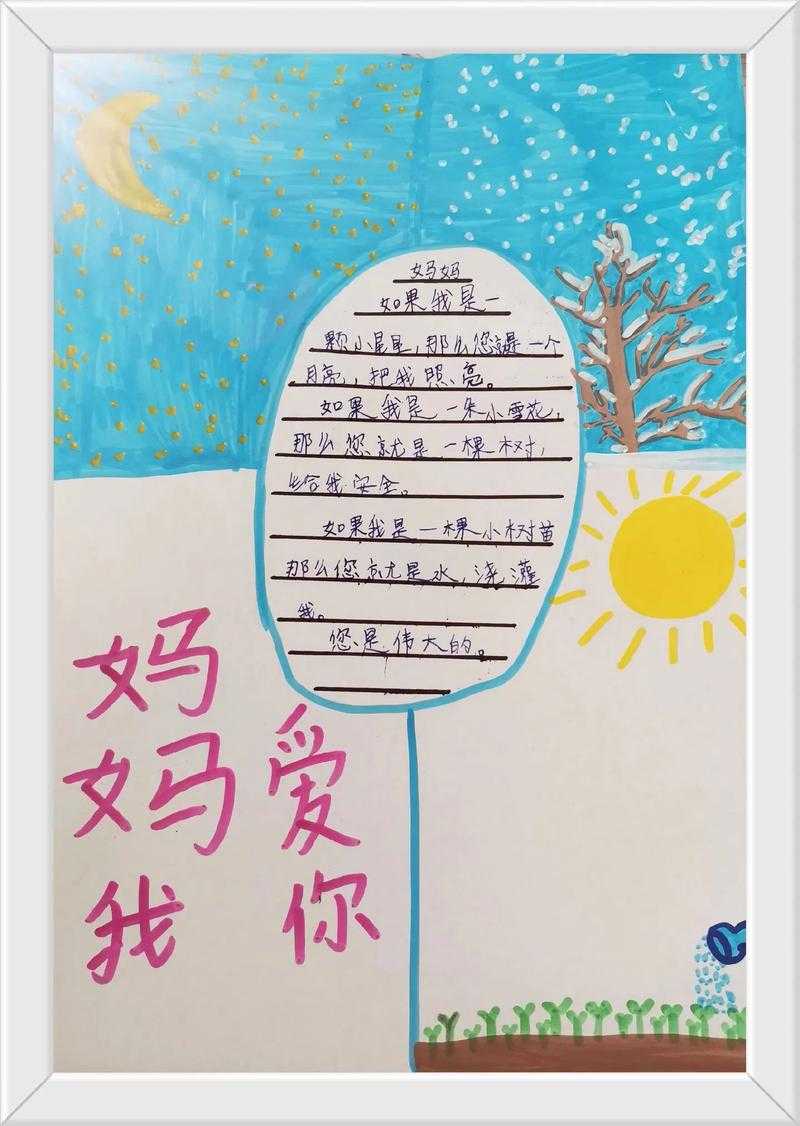 妈妈
如果我是一
颗小星星，那么您就是一个
月亮，把我照亮。
如果我是一朵小雪花，
那么您就是一棵树，
给我安全。
如果我是一棵小树苗
那么您就是水，浇灌
我。
您是伟大的。
妈
妈 爱
我 你